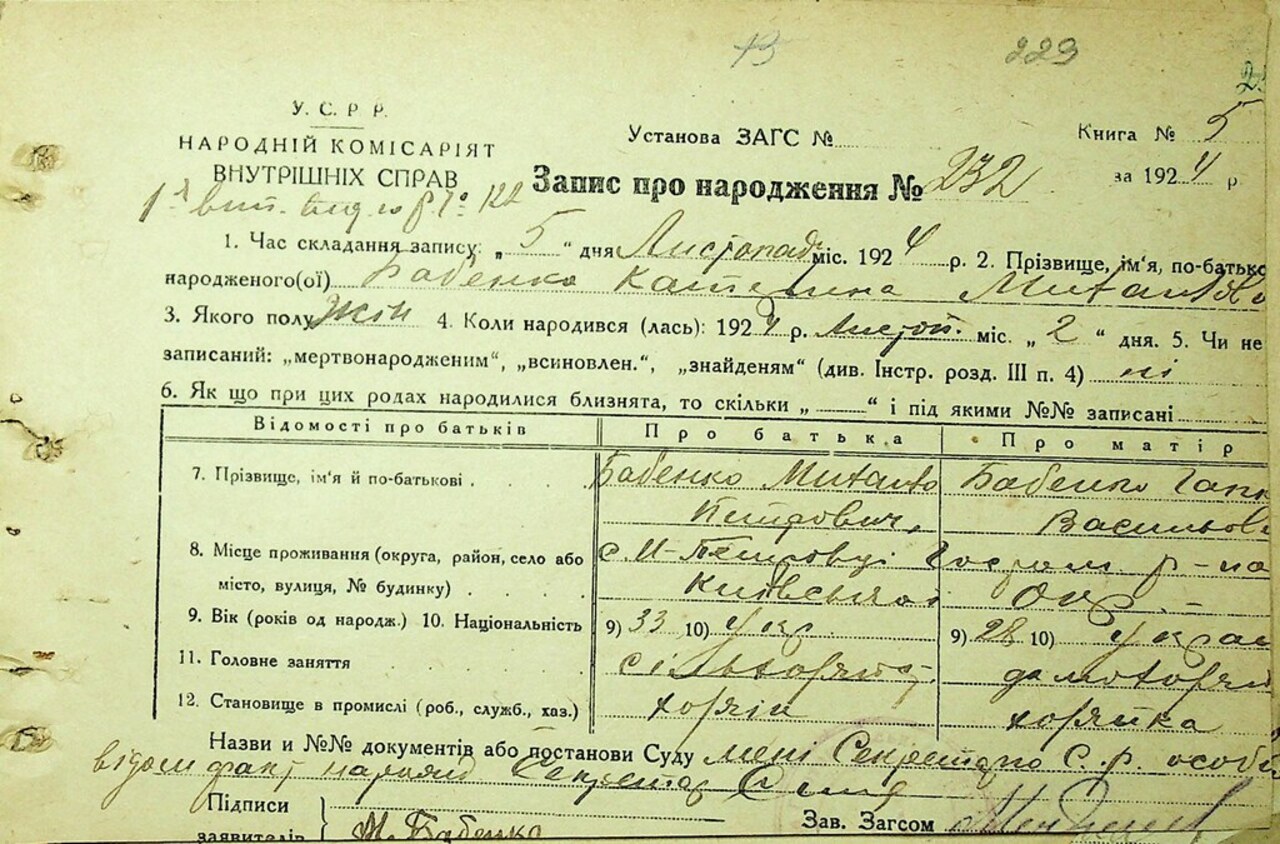 13 229
У. С. Р. Р.
НАРОДНІЙ КОМІСАРІЯТ
ВНУТРІШНІХ СПРАВ
Установа ЗАГС №
Книга № 5
Запис про народження № 232
за 1924 р
1. Час складання запису: „ 5 “ дня Листопад міс. 1924 р. 2. Прізвище, ім'я, по-батькo
народженого(ої) Бабенко Катерина Михайлов
3. Якого полу жін 4. Коли народився (лась): 1924 р. Листоп. міс. „ 2 “ дня. 5. Чи не
записаний: „мертвонародженим“, „всиновлен.“, „знайденям“ (див. Інстр. розд. III п. 4) ні
6. Як що при цих родах народилися близнята, то скільки „ “ і під якими №№ записані
Відомості про батьків Про батька Про матір
7. Прізвище, ім'я й по-батькові Бабенко Михайло Бабенко Гапк
Петрович, Васильов
8. Місце проживання (округа, район, село або с. М-Петровці Гостом. р-на
місто, вулиця, № будинку) Київської Окр.
9. Вік (років од народж.) 10. Національність 9) 33 10) Укр. 9) 28 10) Украї
11. Головне заняття домохазяй
12. Становище в промислі (роб., служб., хаз.) хазяїн хазяйка
Назви и №№ документів або постанови Суду мені Секретарю С. р. особ
відом факт народж Секретар
Підписи
заявителів М. Бабенко
Зав. Загсом